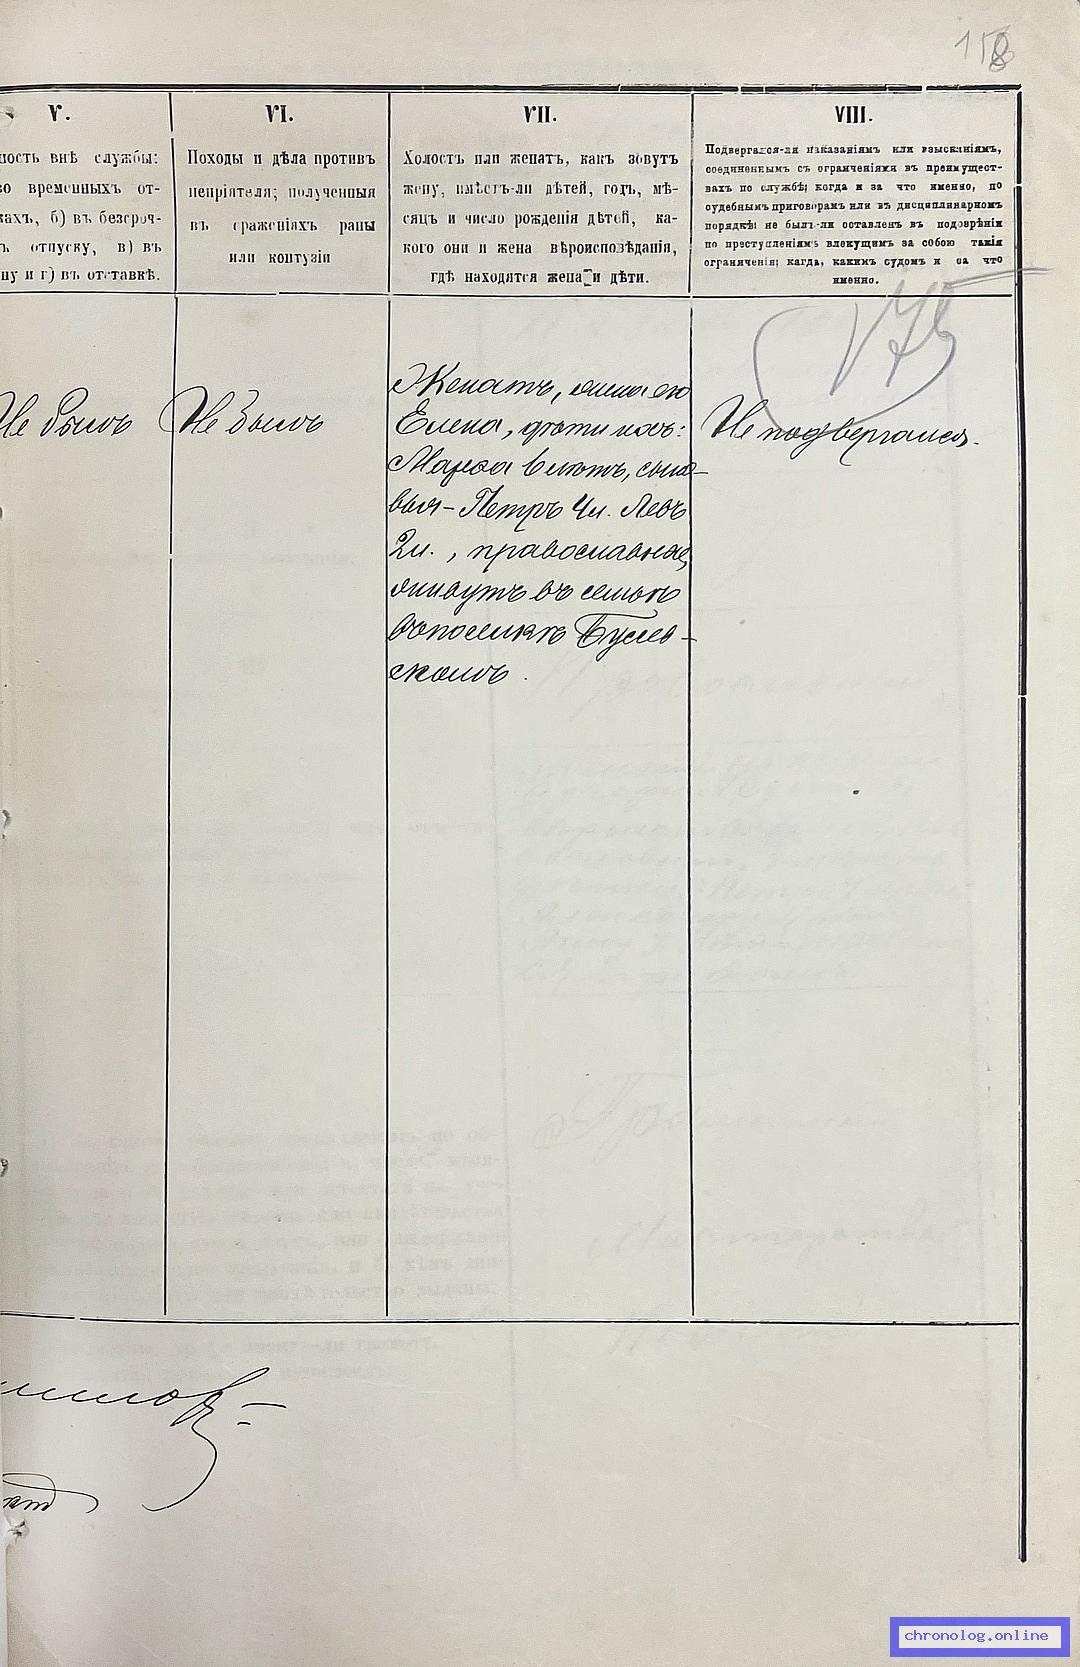 158
V.
ность внѣ службы:
во временныхъ от-
кахъ, б) въ безсроч-
ъ отпуску, в) въ
ну и г) въ отставкѣ.
VI.
Походы и дѣла противъ
непріятеля; полученныя
въ сраженіяхъ раны
или контузіи
VII.
Холостъ или женатъ, какъ зовутъ
жену, имѣетъ-ли дѣтей, годъ, мѣ-
сяцъ и число рожденія дѣтей, ка-
кого они и жена вѣроисповѣданія,
гдѣ находятся жена и дѣти.
VIII.
Подвергался-ли наказаніямъ или взысканіямъ,
соединеннымъ съ ограниченіями въ преимущест-
вахъ по службѣ; когда и за что именно, по
судебнымъ приговорамъ или въ дисциплинарномъ
порядкѣ; не былъ-ли оставленъ въ подозрѣніи
по преступленіямъ влекущимъ за собою такія
ограниченія; кагда, какимъ судомъ и за что
именно.
Не былъ
Не былъ
Женатъ, жена его
Елена, дѣти ихъ:
Марѳа 6 лѣтъ, сыно-
вья - Петръ 4л. Левъ
2л., православные,
живутъ въ семьѣ
въ поселкѣ
Не подвергался.
chronolog.online